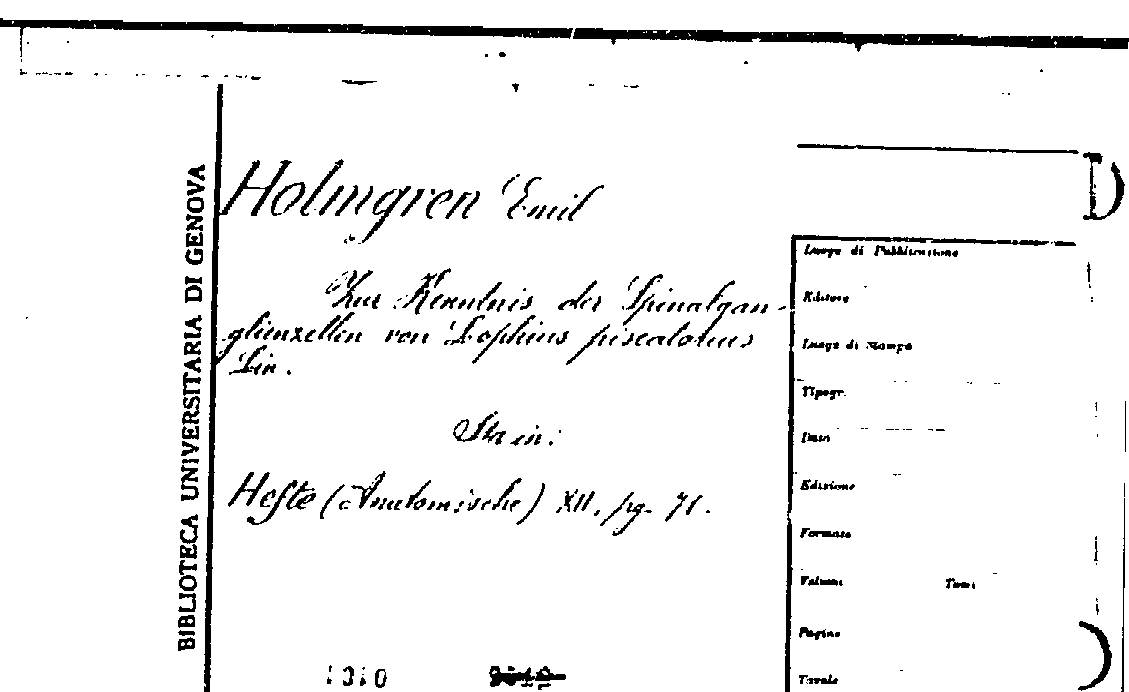 BIBLIOTECA UNIVERSITARIA DI GENOVA
Holmgren Emil
Zur Kenntnis der Spinalgan-
glienzellen von Lophius piscatorius
Lin.
Sta in:
Hefte (Anatomische) XII, pg. 71.
D
Luogo di Pubblicazione
Editore
Luogo di Stampa
Tipogr.
Data
Edizione
Formato
Volumi Tomi
Pagine
Tavole